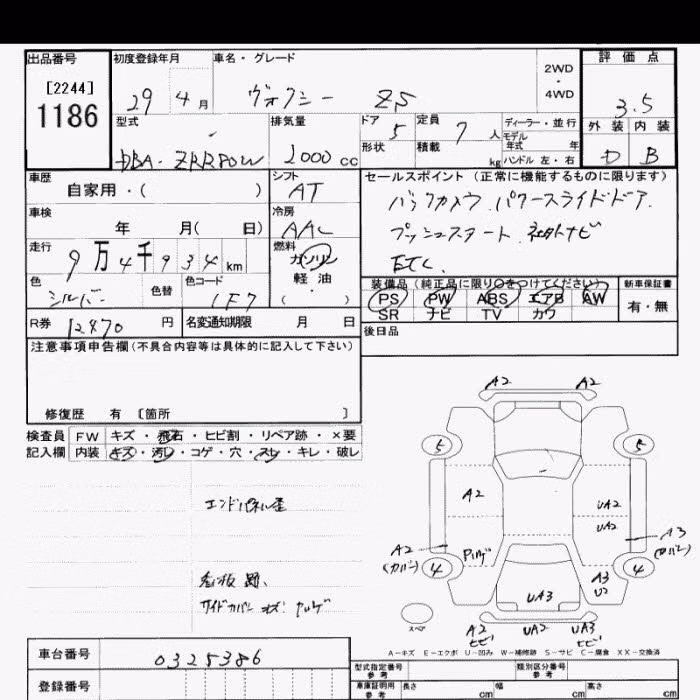 出品番号 初度登録年月 車名・グレード 2WD・4WD 評価点
[2244]
1186 29 4月 ヴォクシー ZS 3.5
型式 排気量 ドア 定員 ディーラー・並行 外装 内装
DBA-ZRR80W 2000cc 5 7人 モデル年式 年 D B
形状 積載 kg ハンドル 左・右
車歴 シフト セールスポイント(正常に機能するものに限ります)
自家用・( ) AT バックカメラ、パワースライドドア、
車検 冷房 プッシュスタート 社外ナビ
年 月( 日) AAC ETC、
走行 燃料
9万4千934km ガソリン
軽油
( ・ )
色 色替 色コード 装備品(純正品に限り○をつけてください) 新車保証書
シルバー 1F7 PS PW ABS エアB AW 有・無
SR ナビ TV カワ
R券 12470円 名変通知期限 月 日 後日品
注意事項申告欄(不具合内容等は具体的に記入して下さい)
修復歴 有 [箇所 ]
検査員 FW キズ・飛石・ヒビ割・リペア跡・×要
記入欄 内装 キズ・汚レ・コゲ・穴・スレ・キレ・破レ
エンドパネル歪
看板跡、
ワイドカバー キズ・ハゲ
A2 A2
5 5
A2 UA2
UA2
A2 (カバー) A3 (カバー)
4 4
A3
U2
UA3
スペア A2 ヒビ UA2 UA3 ヒビ
A-キズ E-エクボ U-凹み W-補修跡 S-サビ C-腐食 XX-交換済
車台番号 0325386 型式指定番号 参考 類別区分番号 参考
登録番号 車庫証明用 参考 長さ cm 幅 cm 高さ cm